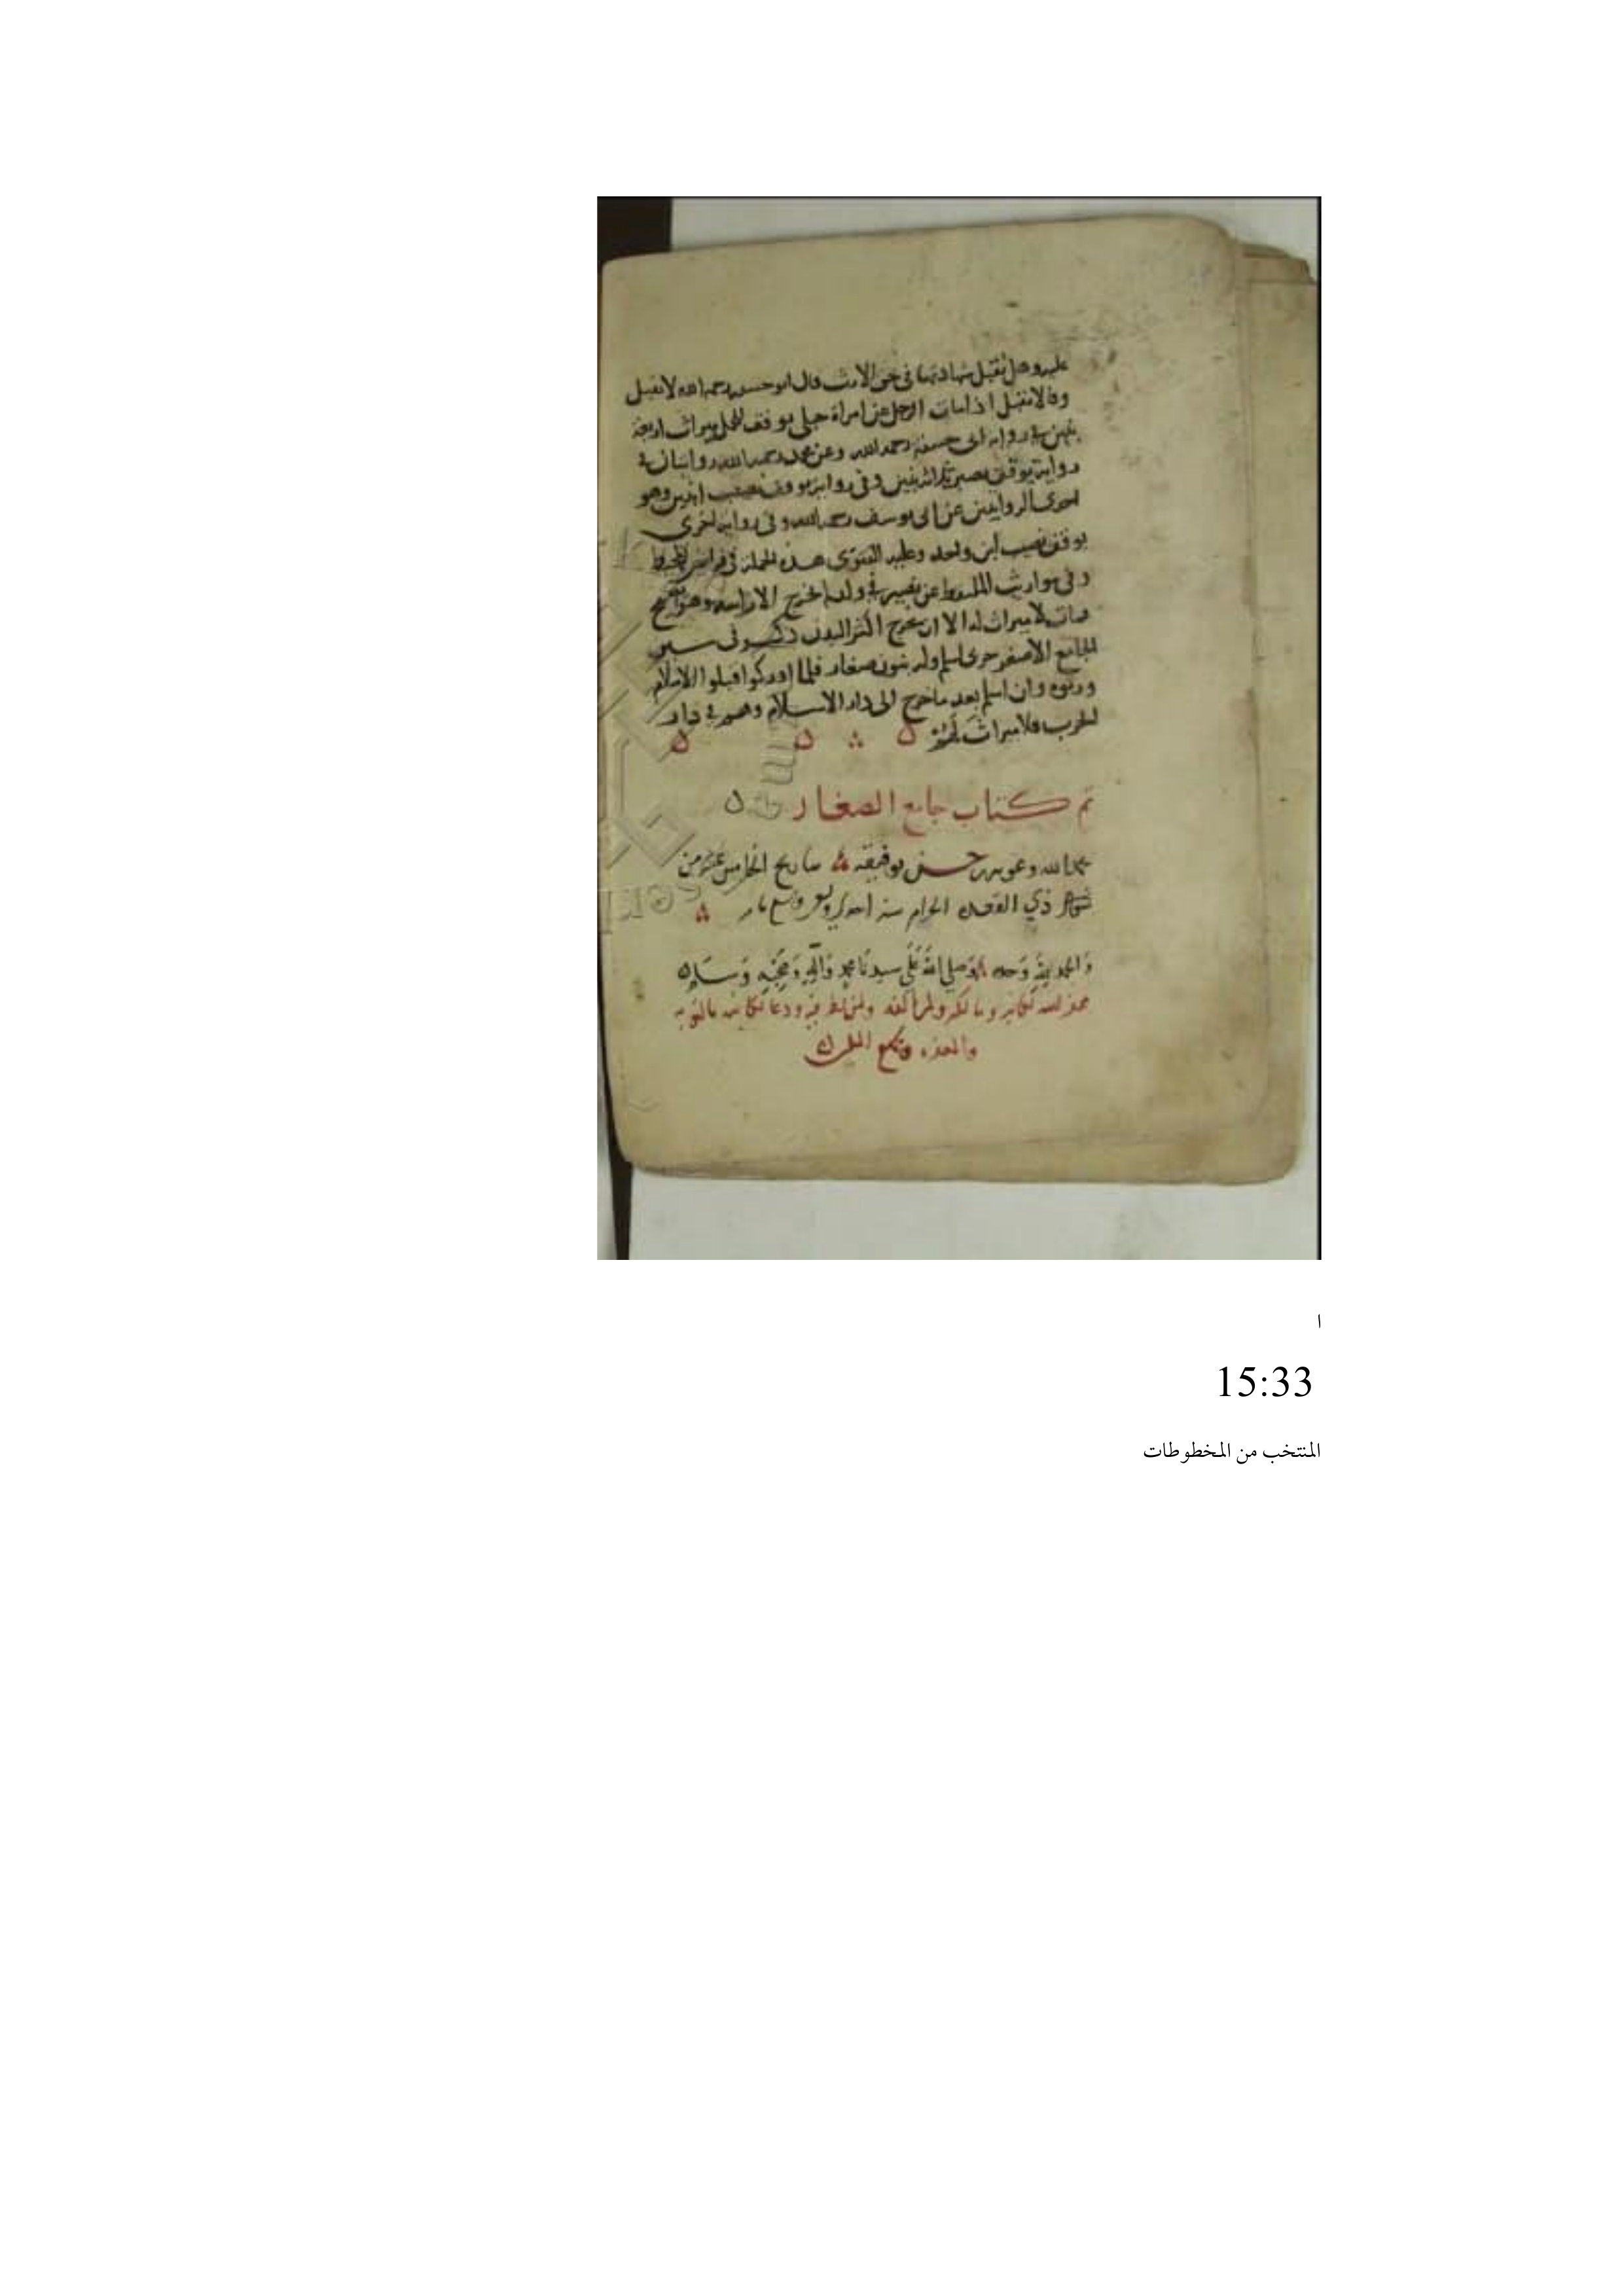 عليه وهل تقبل شهادتهما في حق الارث قال ابو حنيفه رحمه الله لا تقبل
وقالا تقبل اذا مات الرجل عن امراة حبلى يوقف للحمل ميراث اربعة
بنين في رواية ابى حنيفه رحمه الله وعن محمد رحمه الله روايتان في
رواية يوقف نصيب ثلاثة بنين وفي رواية يوقف نصيب ابنين وهو
احدى الروايتين عن ابى يوسف رحمه الله وفي رواية اخرى
يوقف نصيب ابن واحد وعليه الفتوى هذه الجملة في فرائض المحيط
وفي مواريث الملتقط عن نصير في ولد لم يخرج الا راسه وهو يصيح
فمات لا ميراث له الا ان يخرج اكثر البدن ذكر في سير
الجامع الاصغر حربى اسلم وله بنون صغار فلما ادركوا قبلوا الاسلام
ورثوه وان اسلم بعد ما خرج الى دار الاسلام وهم في دار
الحرب فلا ميراث لهم
تم كتاب جامع الصغار
بحمد الله وعونه وحسن توفيقه بتاريخ الخامس عشر من
شهر ذي القعده الحرام سنة احدى
والحمد لله وحده وصلى الله على سيدنا محمد وآله وصحبه وسلم
غفر الله لكاتبه ومالكه ولمن الفه ولمن نظر فيه ودعا لكاتبه بالتوبه
والمغفره
ا
15:33
المنتخب من المخطوطات